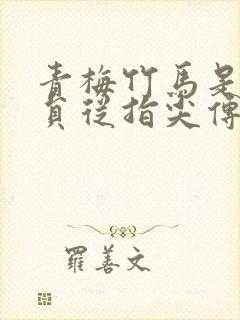 青梅竹馬是
貞從指尖傳
羅善文